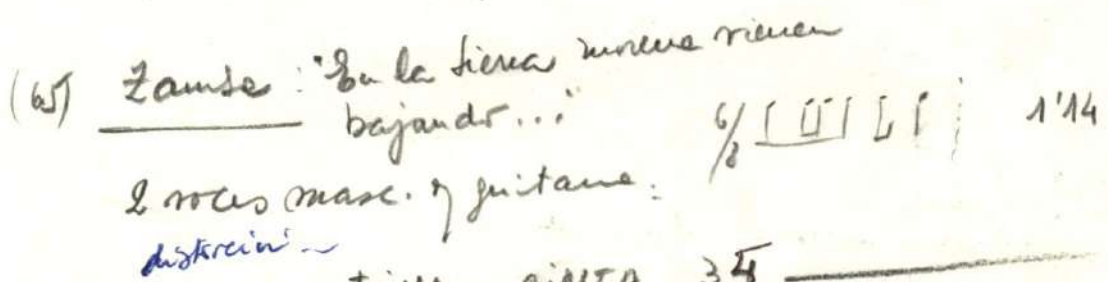 (65) Zamba: "En la sierra morena vienen
bajando..."
6/8 1'14
2 voces masc. y guitarra.
distorsión